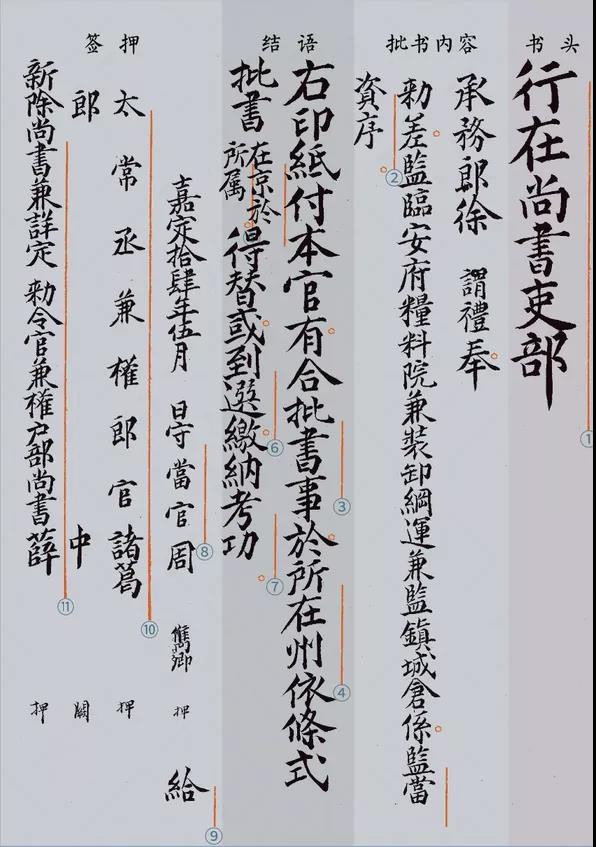 书头
批书内容
结语
签押
行在尚書吏部
①
承務郎徐 謂禮奉
勑差監臨安府糧料院兼裝卸綱運兼監鎮城倉係監當
資序
②
右印紙付本官有合批書事於所在州依條式
③
④
批書在京於所属得替或到選繳納考功
⑥
⑦
嘉定拾肆年伍月 日守當官周 雋卿 押 給
⑧
⑨
太常丞兼權郎官諸葛 押
⑩
郎 中 闕
新除尚書兼詳定 勑令官兼權户部尚書薛 押
⑪